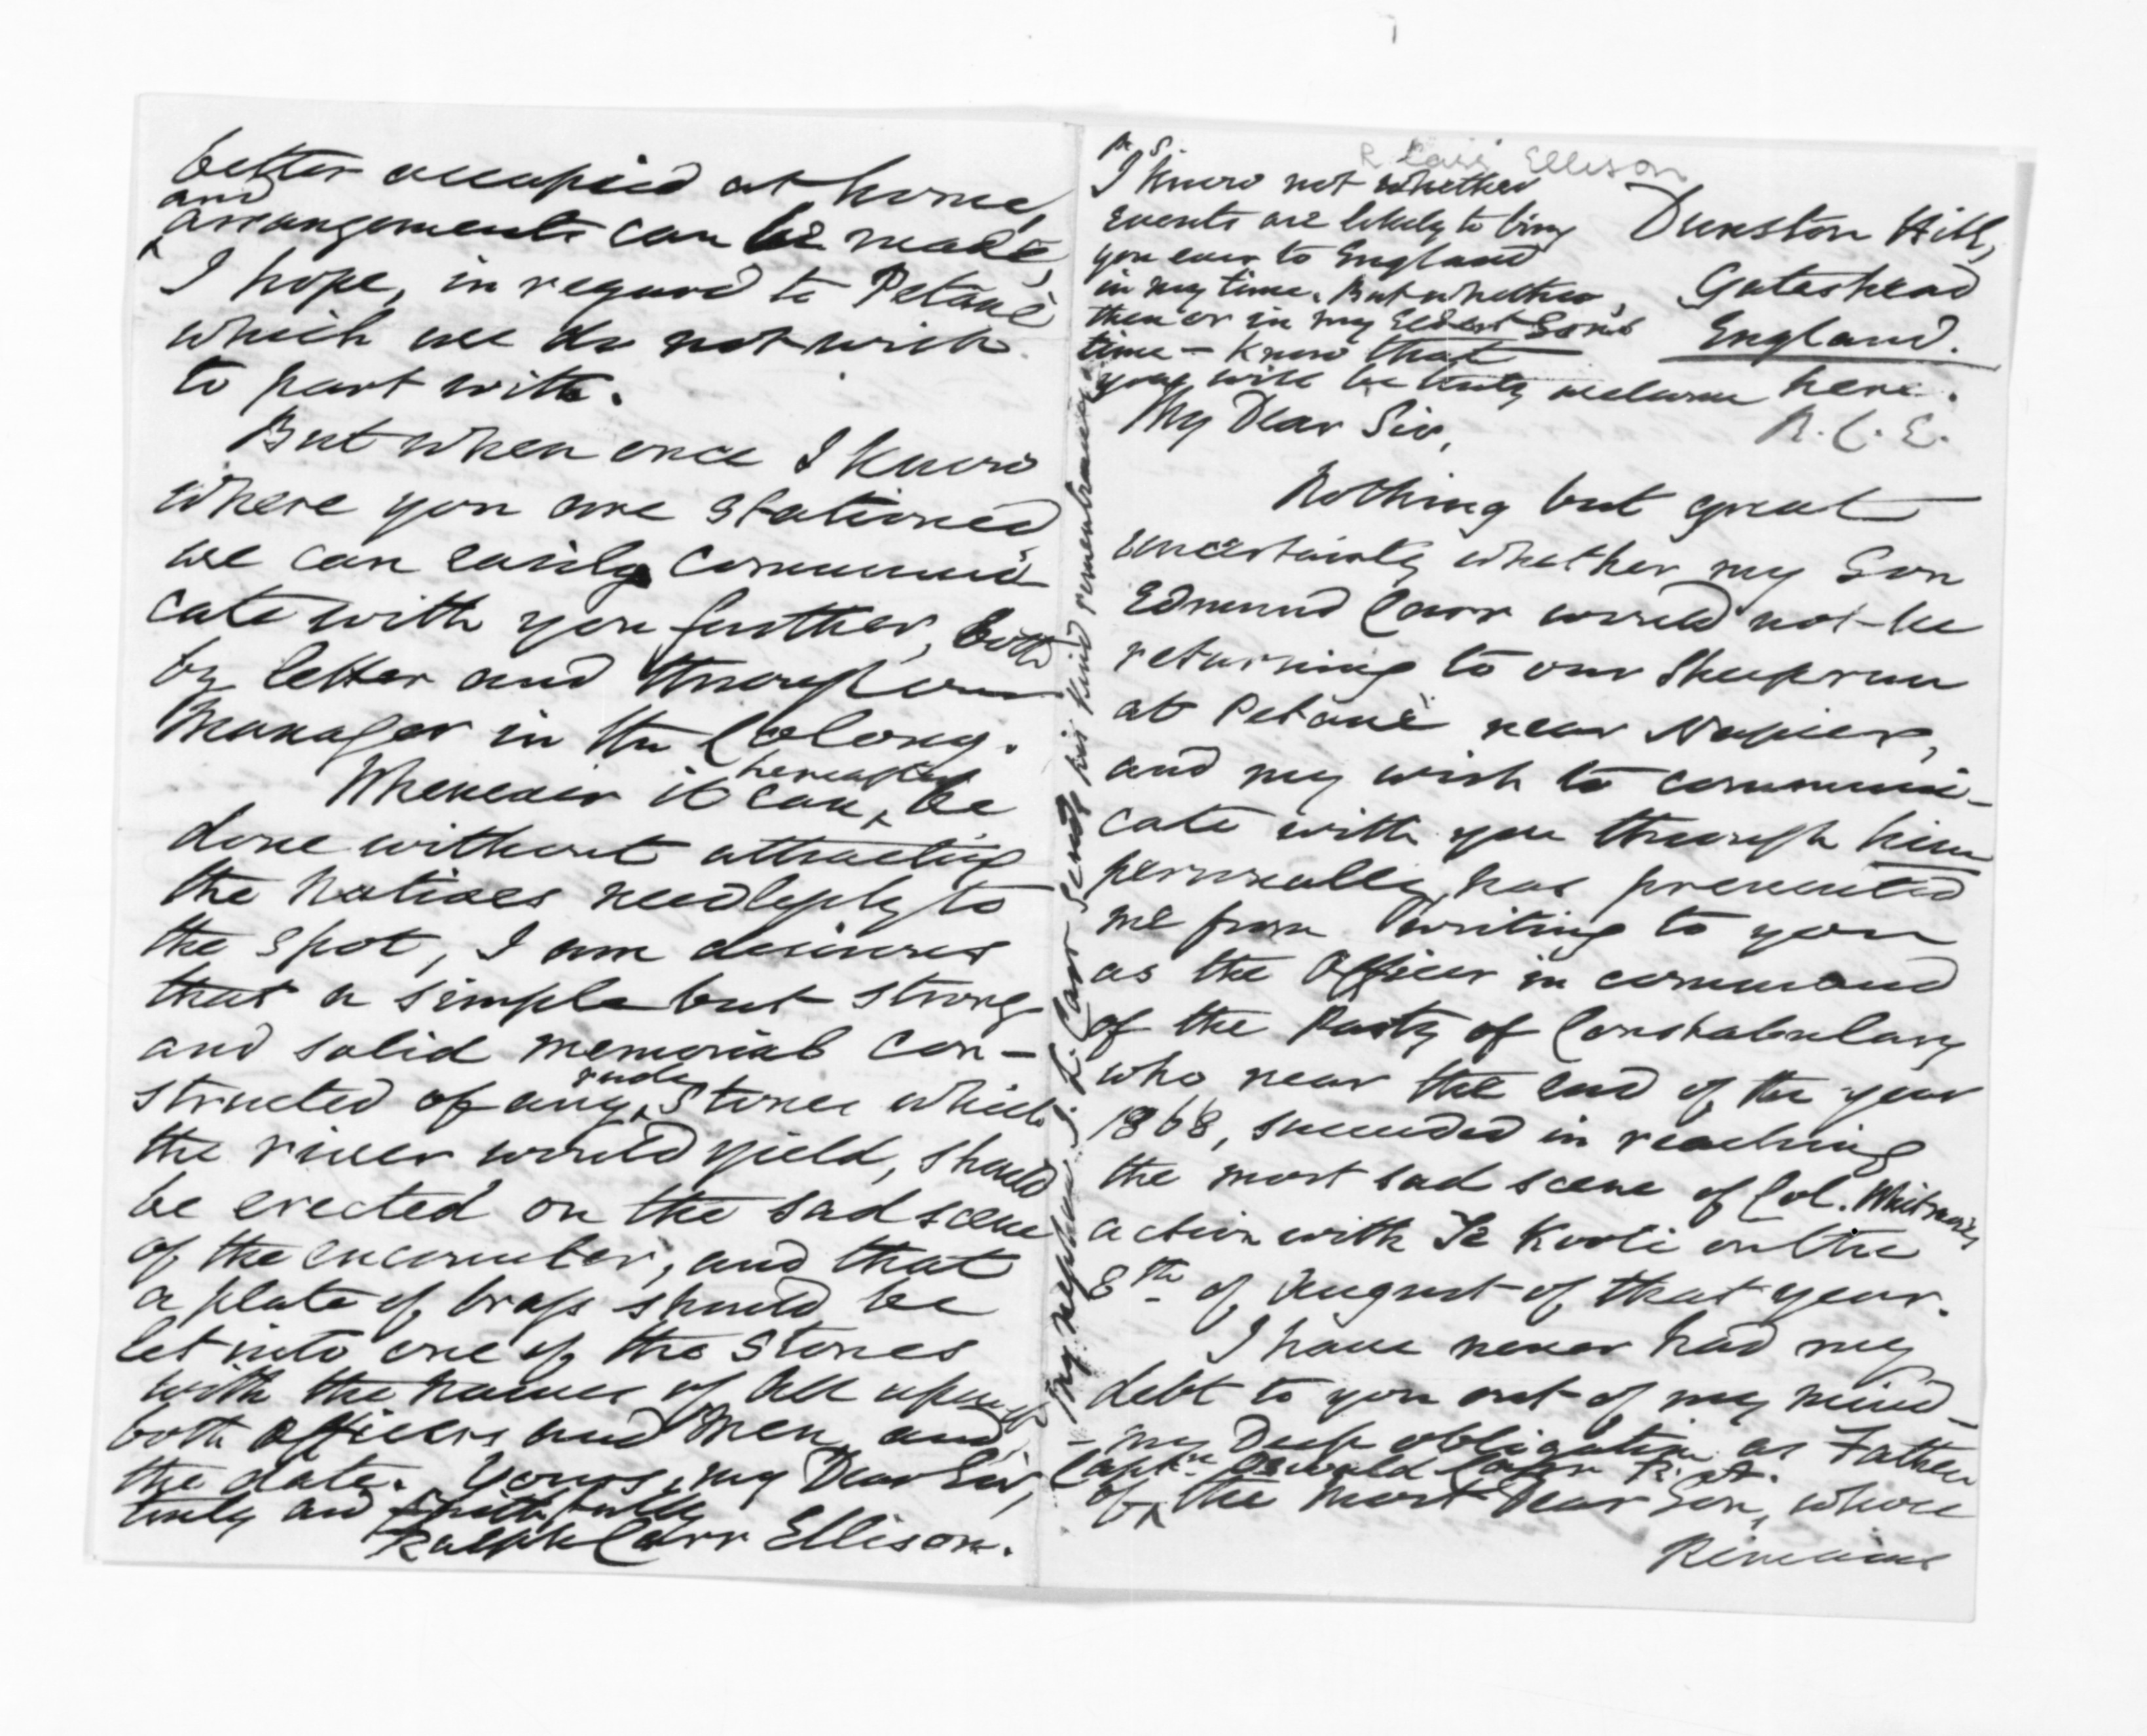 better occupied at home,
and
arrangements can be made,
I hope, in regard to Petane
which we do not wish
to part with.
But when once I know
where you are stationed
we can easily communi-
cate with you further, both
by letter and through our
Manager in the Colony.
Whenever it can hereafter be
done without attracting
the Natives needlessly to
the spot, I am desirous
that a simple but strong
and solid memorial con-
structed of any rude stones which
the river would yield, should
be erected on the sad scene
of the encounter, and that
a plate of brass should be
let into one of the stones
with the names of all
both officers and men and
the date. Yours, my Dear Sir,
truly and faithfully
Ralph Carr Ellison.
R Carr Ellison
P.S.
I know not whether
events are likely to bring
you ever to England
in my time. But whether
then or in my Eldest Son's
time - know that
you will be truly welcome here.
R. C. E.
Dunston Hill,
Gateshead
England.
My Dear Sir,
Nothing but great
uncertainty whether my Son
Edmund Carr would not be
returning to our Sheeprun
at Petane near Napier,
and my wish to communi-
cate with you through him
personally, has prevented
me from writing to you
as the Officer in command
of the Party of Constabulary
who near the end of the year
1868, succeeded in reaching
the most sad scene of Col. Whitmore's
action with Te Kooti on the
8th of August of that year.
I have never had my
debt to you out of my mind -
- my Deep obligation as Father
of Captn. Oswald Carr R.A.
the most Dear Son, whose
Remains
My nephew J. L. Carr sends his kind remembrances